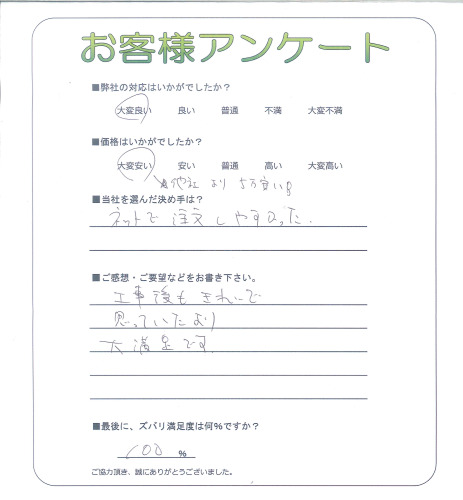 お客様アンケート
■弊社の対応はいかがでしたか？
大変良い 良い 普通 不満 大変不満
■価格はいかがでしたか？
大変安い 安い 普通 高い 大変高い
他社より 5万安い
■当社を選んだ決め手は？
ネットで 注文しやすかった.
■ご感想・ご要望などをお書き下さい。
工事後も きれいで
思っていたより
大満足です.
■最後に、ズバリ満足度は何％ですか？
100 ％
ご協力頂き、誠にありがとうございました。